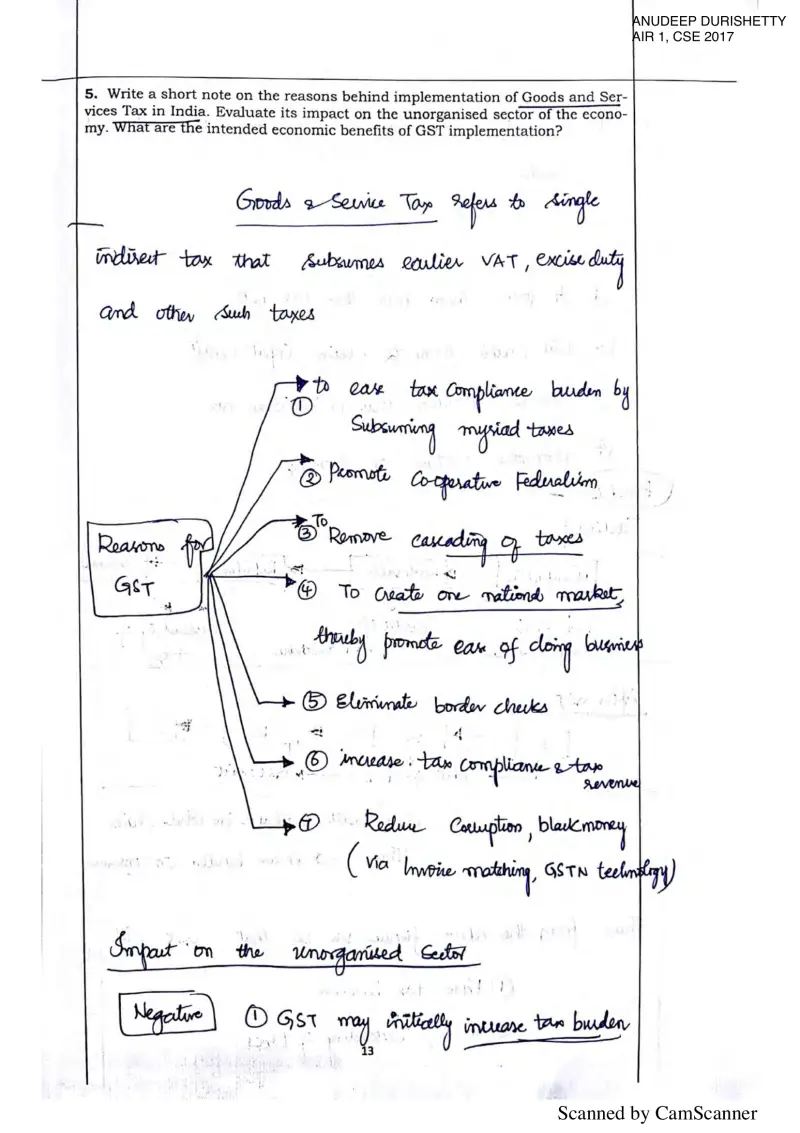 ANUDEEP DURISHETTY
AIR 1, CSE 2017
5. Write a short note on the reasons behind implementation of Goods and Ser-
vices Tax in India. Evaluate its impact on the unorganised sector of the econo-
my. What are the intended economic benefits of GST implementation?
Goods & Service Tax refers to single
indirect tax that subsumes earlier VAT, excise duty
and other such taxes
① to ease tax compliance burden by
Subsuming myriad taxes
② Promote Co-operative Federalism
③ To Remove cascading of taxes
Reasons for
GST
④ To Create one national market,
thereby promote ease of doing business
⑤ Eliminate border checks
⑥ increase tax compliance & tax
revenue
⑦ Reduce Corruption, black money
(Via Invoice matching, GSTN technology)
Impact on the unorganised sector
Negative ① GST may initially increase tax burden
13
Scanned by CamScanner